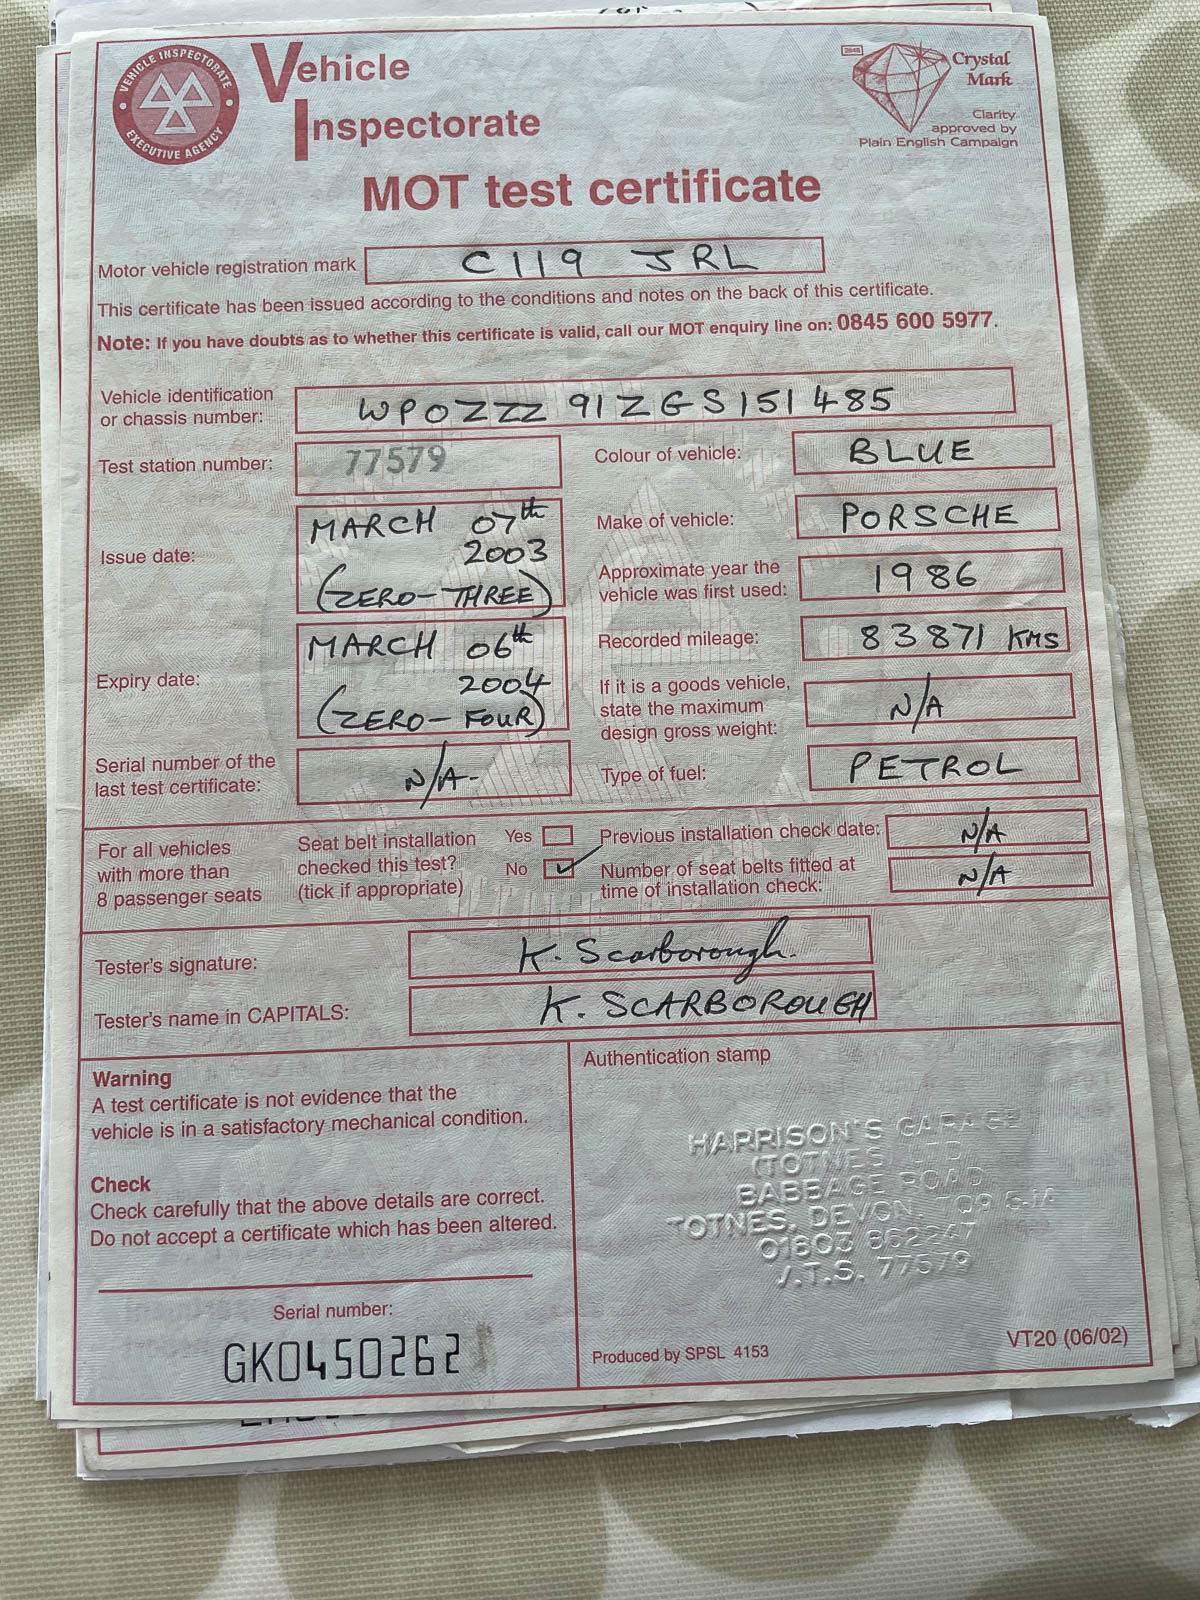 VEHICLE INSPECTORATE
EXECUTIVE AGENCY
Vehicle
Inspectorate
Crystal
Mark
Clarity
approved by
Plain English Campaign
MOT test certificate
Motor vehicle registration mark C119 JRL
This certificate has been issued according to the conditions and notes on the back of this certificate.
Note: If you have doubts as to whether this certificate is valid, call our MOT enquiry line on: 0845 600 5977.
Vehicle identification
or chassis number: WPOZZZ 91ZGS151485
Test station number: 77579
Colour of vehicle: BLUE
Issue date: MARCH 07th
2003
(ZERO-THREE)
Make of vehicle: PORSCHE
Approximate year the
vehicle was first used: 1986
Expiry date: MARCH 06th
2004
(ZERO-FOUR)
Recorded mileage: 83871 KMS
If it is a goods vehicle,
state the maximum
design gross weight: N/A
Serial number of the
last test certificate: N/A-
Type of fuel: PETROL
For all vehicles
with more than
8 passenger seats
Seat belt installation
checked this test?
(tick if appropriate)
Yes
No ✓
Previous installation check date: N/A
Number of seat belts fitted at
time of installation check: N/A
Tester's signature: K. Scarborough.
Tester's name in CAPITALS: K. SCARBOROUGH
Warning
A test certificate is not evidence that the
vehicle is in a satisfactory mechanical condition.
Check
Check carefully that the above details are correct.
Do not accept a certificate which has been altered.
Serial number:
GK0450262
Authentication stamp
HARRISON'S GARAGE
(TOTNES) LTD
BABBAGE ROAD
TOTNES, DEVON. TQ9 5JA
01803 862247
V.T.S. 77579
Produced by SPSL 4153
VT20 (06/02)